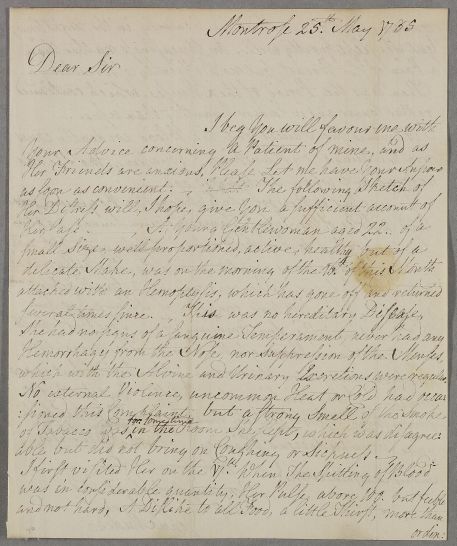 Montrose 25.th May 1785
Dear Sir
I beg You will favour me with
Your Advice concerning a Patient of mine, and as
Her Friends are anxious, Please Let me have Your Answer
as soon as convenient. The following Sketch of
Her Distress will, I hope, give You a sufficient account of
Her Case. A Young Gentlewoman aged 22. of a
small Size, well proportioned, active, healthy but of a
delicate Make, was on the morning of the of this Month
attacked with an Hemoptysis, which has gone off and returned
several times since. This was no hereditary Disease,
She had no signs of a sanguine Temperament, never had any
Hemorrhagy from the Nose, nor suppression of the Menses,
which with the Alvine and Urinary Excretions were regular
No external Violence, uncommon Heat or Cold had occa
:sioned this Complaint, but a strong Smell of the Smoke
of Tobacco was for sometime in the Room She slept, which was disagree:
able, but did not bring on Coughing or Sickness.
I first visited Her on the When the Spitting of Blood
was in considerable quantity; Her Pulse above 100. but
and not hard, A Dislike to all Food, a little Thirst, more than
orden: